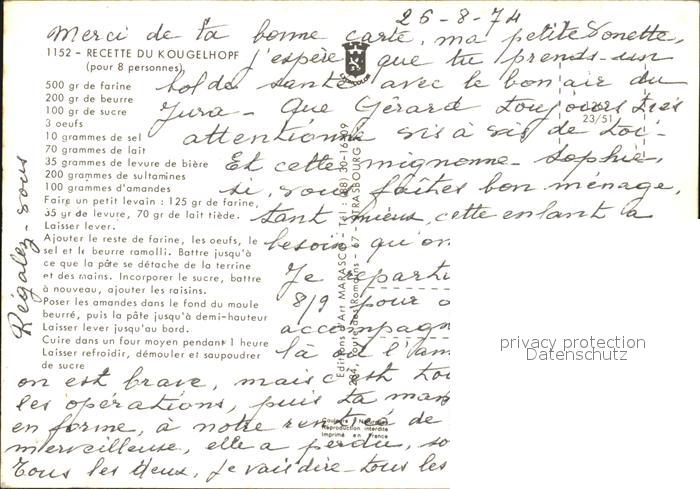 26-8-74
Merci de ta bonne carte, ma petite Yonette,
1152 - RECETTE DU KOUGELHOPF
(pour 8 personnes)
j'espère que tu prends un
500 gr de farine
200 gr de beurre
100 gr de sucre
3 oeufs
10 grammes de sel
70 grammes de lait
35 grammes de levure de bière
200 grammes de sultamines
100 grammes d'amandes
Faire un petit levain : 125 gr de farine,
35 gr de levure, 70 gr de lait tiède.
Laisser lever.
Ajouter le reste de farine, les oeufs, le
sel et le beurre ramolli. Battre jusqu'à
ce que la pâte se détache de la terrine
et des mains. Incorporer le sucre, battre
à nouveau, ajouter les raisins.
Poser les amandes dans le fond du moule
beurré, puis la pâte jusqu'à demi-hauteur
Laisser lever jusqu'au bord.
Cuire dans un four moyen pendant 1 heure
Laisser refroidir, démouler et saupoudrer
de sucre
Régalez-vous
bol de santé avec le bon air du
Jura - Que Gérard toujours très
23/51
attentionné vis à vis de toi -
Et cette mignonne Sophie,
si vous faites bon ménage,
tant mieux, cette enfant a
besoin qu'on
Je repartir
8/9 pour
accompagn
là où l'am
on est brave, mais c'est tou
les opérations, puis ta mam
en forme, à notre rentrée de
merveilleuse, elle a perdu, so
Tous les deux, je vais dire - tous les
Editions d'Art MARASCO - Tél : (88) 30-16-09
284, Route des Romains - 67 - STRASBOURG
Couleurs Naturelles
Reproduction interdite
Imprimé en France
privacy protection
Datenschutz